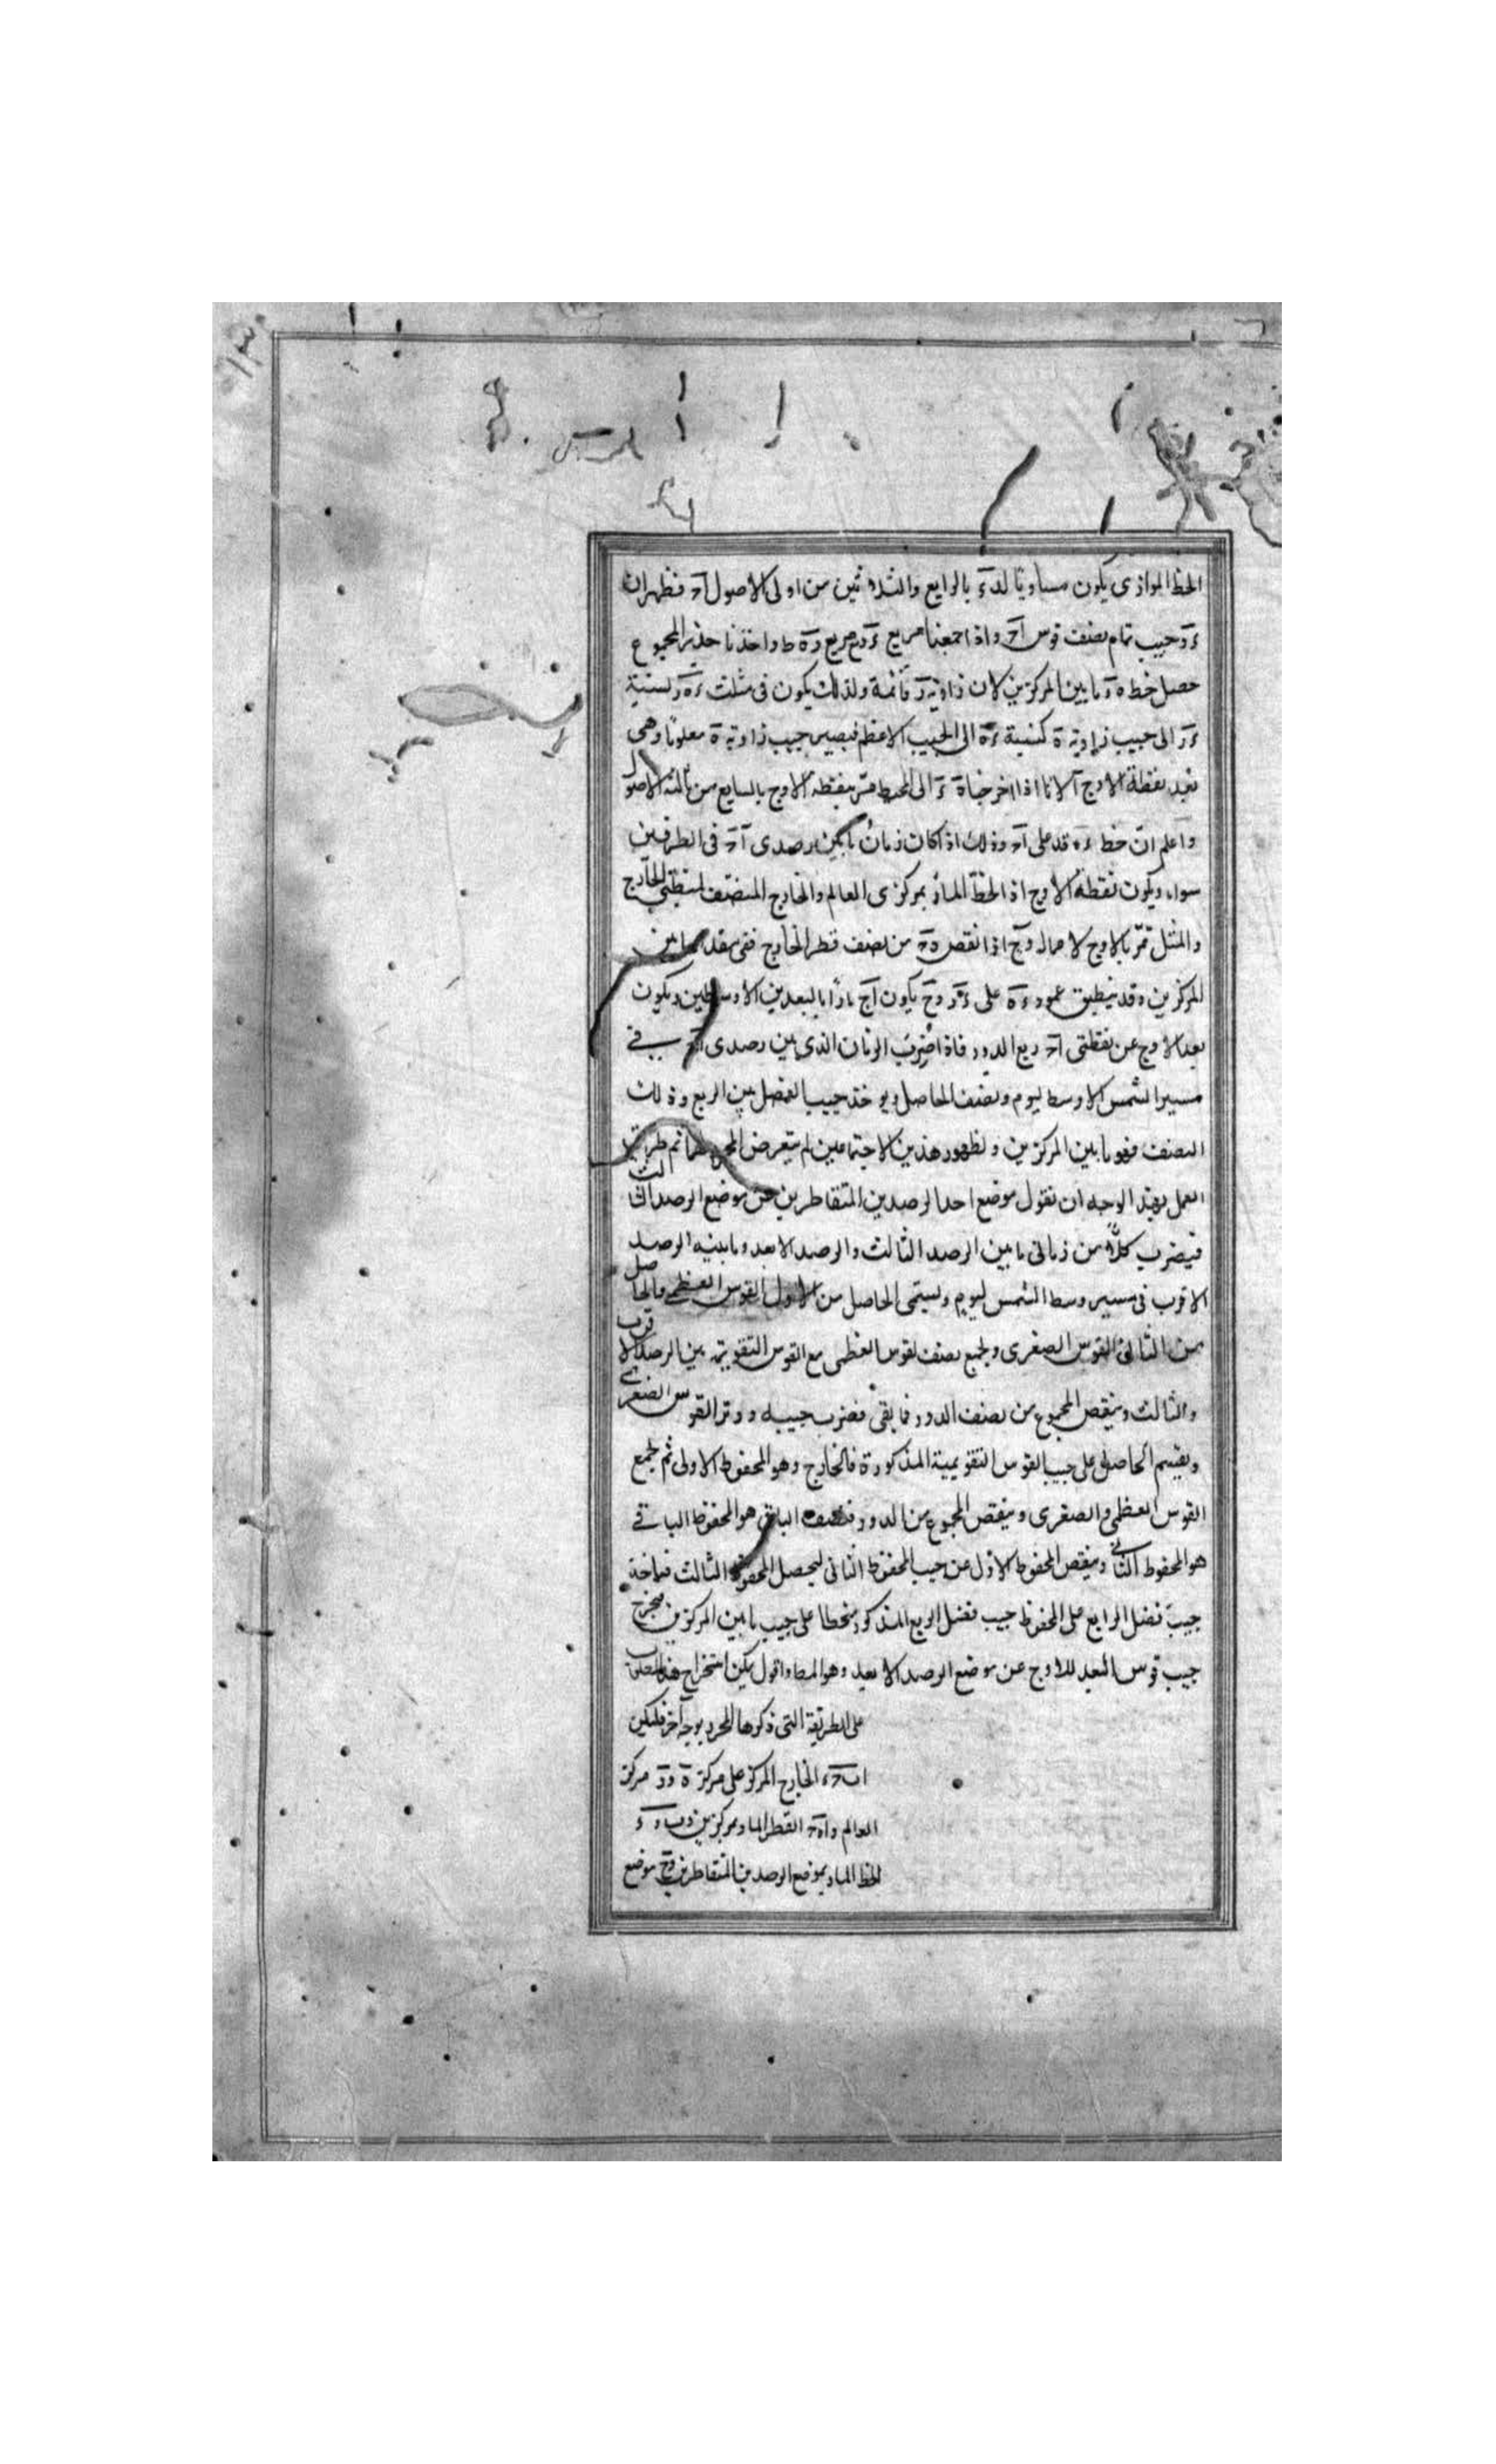 الخط الموازى يكون مساويا لدء بالرابع والثلاثين من اولى الاصول اح فظهر ان
ءر جيب تمام نصف قوس اح واذا جمعنا مربع ءر مع مربع ره ط واخذنا جذر المجموع
حصل خط ه ء ما بين المركزين لان زاوية ر قائمة ولذلك يكون فى مثلث ءه ر نسبة
ءر الى جيب زاوية ه كنسبة ءه الى الجيب الاعظم فيصير جيب زاوية ه معلوما وهى
بعد نقطة الاوج لانا اذا اخرجناه الى المحيط مر بنقطة الاوج بالسابع من ثالثة الاصول
واعلم ان خط ءه قد على اح وذلك اذا كان زمان ما بين رصدى اح فى الطرفين
سواء ويكون نقطة الاوج اذ الخط المار بمركزى العالم والخارج المنصف لمنطقتى الخارج
والممثل تمر بالاوج لا محالة وح اذا نقص من نصف قطر الخارج فقى بقدر ما بين
المركزين وقد ينطبق عمود ءه على ءر وح يكون اج مارا بالبعدين الاوسطين ويكون
بعد الاوج عن نقطتى اح ربع الدور فاذا ضرب الزمان الذى بين رصدى اح فى
مسير الشمس الاوسط ليوم ونصف الحاصل ويوخذ جيب الفضل بين الربع وذلك
النصف فهو ما بين المركزين ولظهور هذين الاحتمالين لم يتعرض المحرر لهما ثم طريق
العمل بهذا الوجه ان نقول موضع احد الرصدين المتقاطرين عن موضع الرصد الثالث
فيضرب كلا من زمانى ما بين الرصد الثالث والرصد الابعد وما بينه الرصد
الاقرب فى مسير وسط الشمس ليوم ويسمى الحاصل من الاول القوس العظمى والحاصل
من الثانى القوس الصغرى ويجمع نصف القوس العظمى مع القوس التقويمية بين الرصد الاقرب
والثالث وينقص المجموع من نصف الدور فما بقى فضرب جيبه ووتر القوس الصغرى
ويقسم الحاصل على جيب القوس التقويمية المذكورة فالخارج وهو المحفوظ الاولى ثم يجمع
القوس العظمى والصغرى وينقص المجموع من الدور فنصف الباقى هو المحفوظ الباقى
هو المحفوظ الثانى وينقص المحفوظ الاول عن جيب المحفوظ الثانى ليحصل المحفوظ الثالث فماخذ
جيب فضل الرابع على المحفوظ جيب فضل الربع المذكور منحطا على جيب ما بين المركزين فيخرج
جيب قوس البعد للاوج عن موضع الرصد الابعد وهو المط واقول يمكن استخراج هذا المطلب
على الطريقة التى ذكرها المحرر بوجه آخر فليكن
اب حء الخارج المركز على مركز ه ور مركز
العالم واه ح القطر المار بمركزين وب ر ء
الخط المار بموضع الرصدين المتقاطرين وح موضع